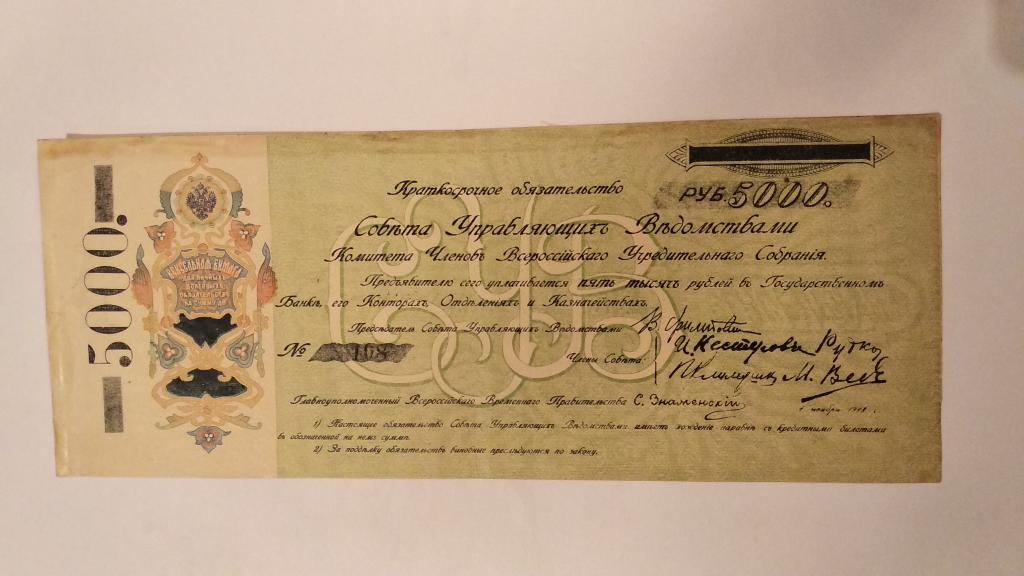 5000.
ВЕКСЕЛЬНАЯ БУМАГА
ДЛЯ ЛИЧНЫХЪ
ДОЛГОВЫХЪ
ОБЯЗАТЕЛЬСТВЪ
НА СУММУ ДО
РУБ. 5000.
Краткосрочное обязательство
Совѣта Управляющихъ Вѣдомствами
Комитета Членовъ Всероссійскаго Учредительнаго Собранія.
Предъявителю сего уплачивается пять тысячъ рублей въ Государственномъ
Банкѣ, его Конторахъ, Отдѣленіяхъ и Казначействахъ.
Предсѣдатель Совѣта Управляющихъ Вѣдомствами
№ 168
Члены Совѣта:
И. Нестеровъ Рудко
П. Климушкин М. Веде
Главноуполномоченный Всероссійскаго Временнаго Правительства С. Знаменскій
1 ноября 1918 г.
1) Настоящее обязательство Совѣта Управляющихъ Вѣдомствами имѣетъ хожденіе наравнѣ съ кредитными билетами
въ обозначенной на немъ суммѣ.
2) За поддѣлку обязательствъ виновные преслѣдуются по закону.